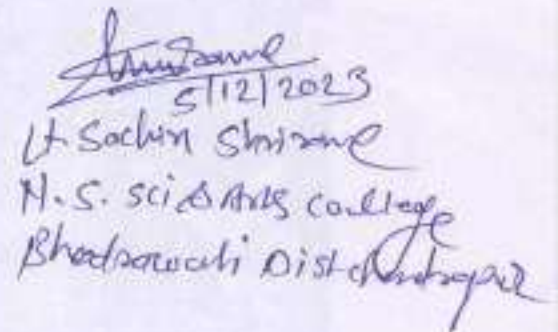 5/12/2023
Lt Sachin Shrirame
N.S. Sci & Arts College
Bhadrawati Dist Chandrapur